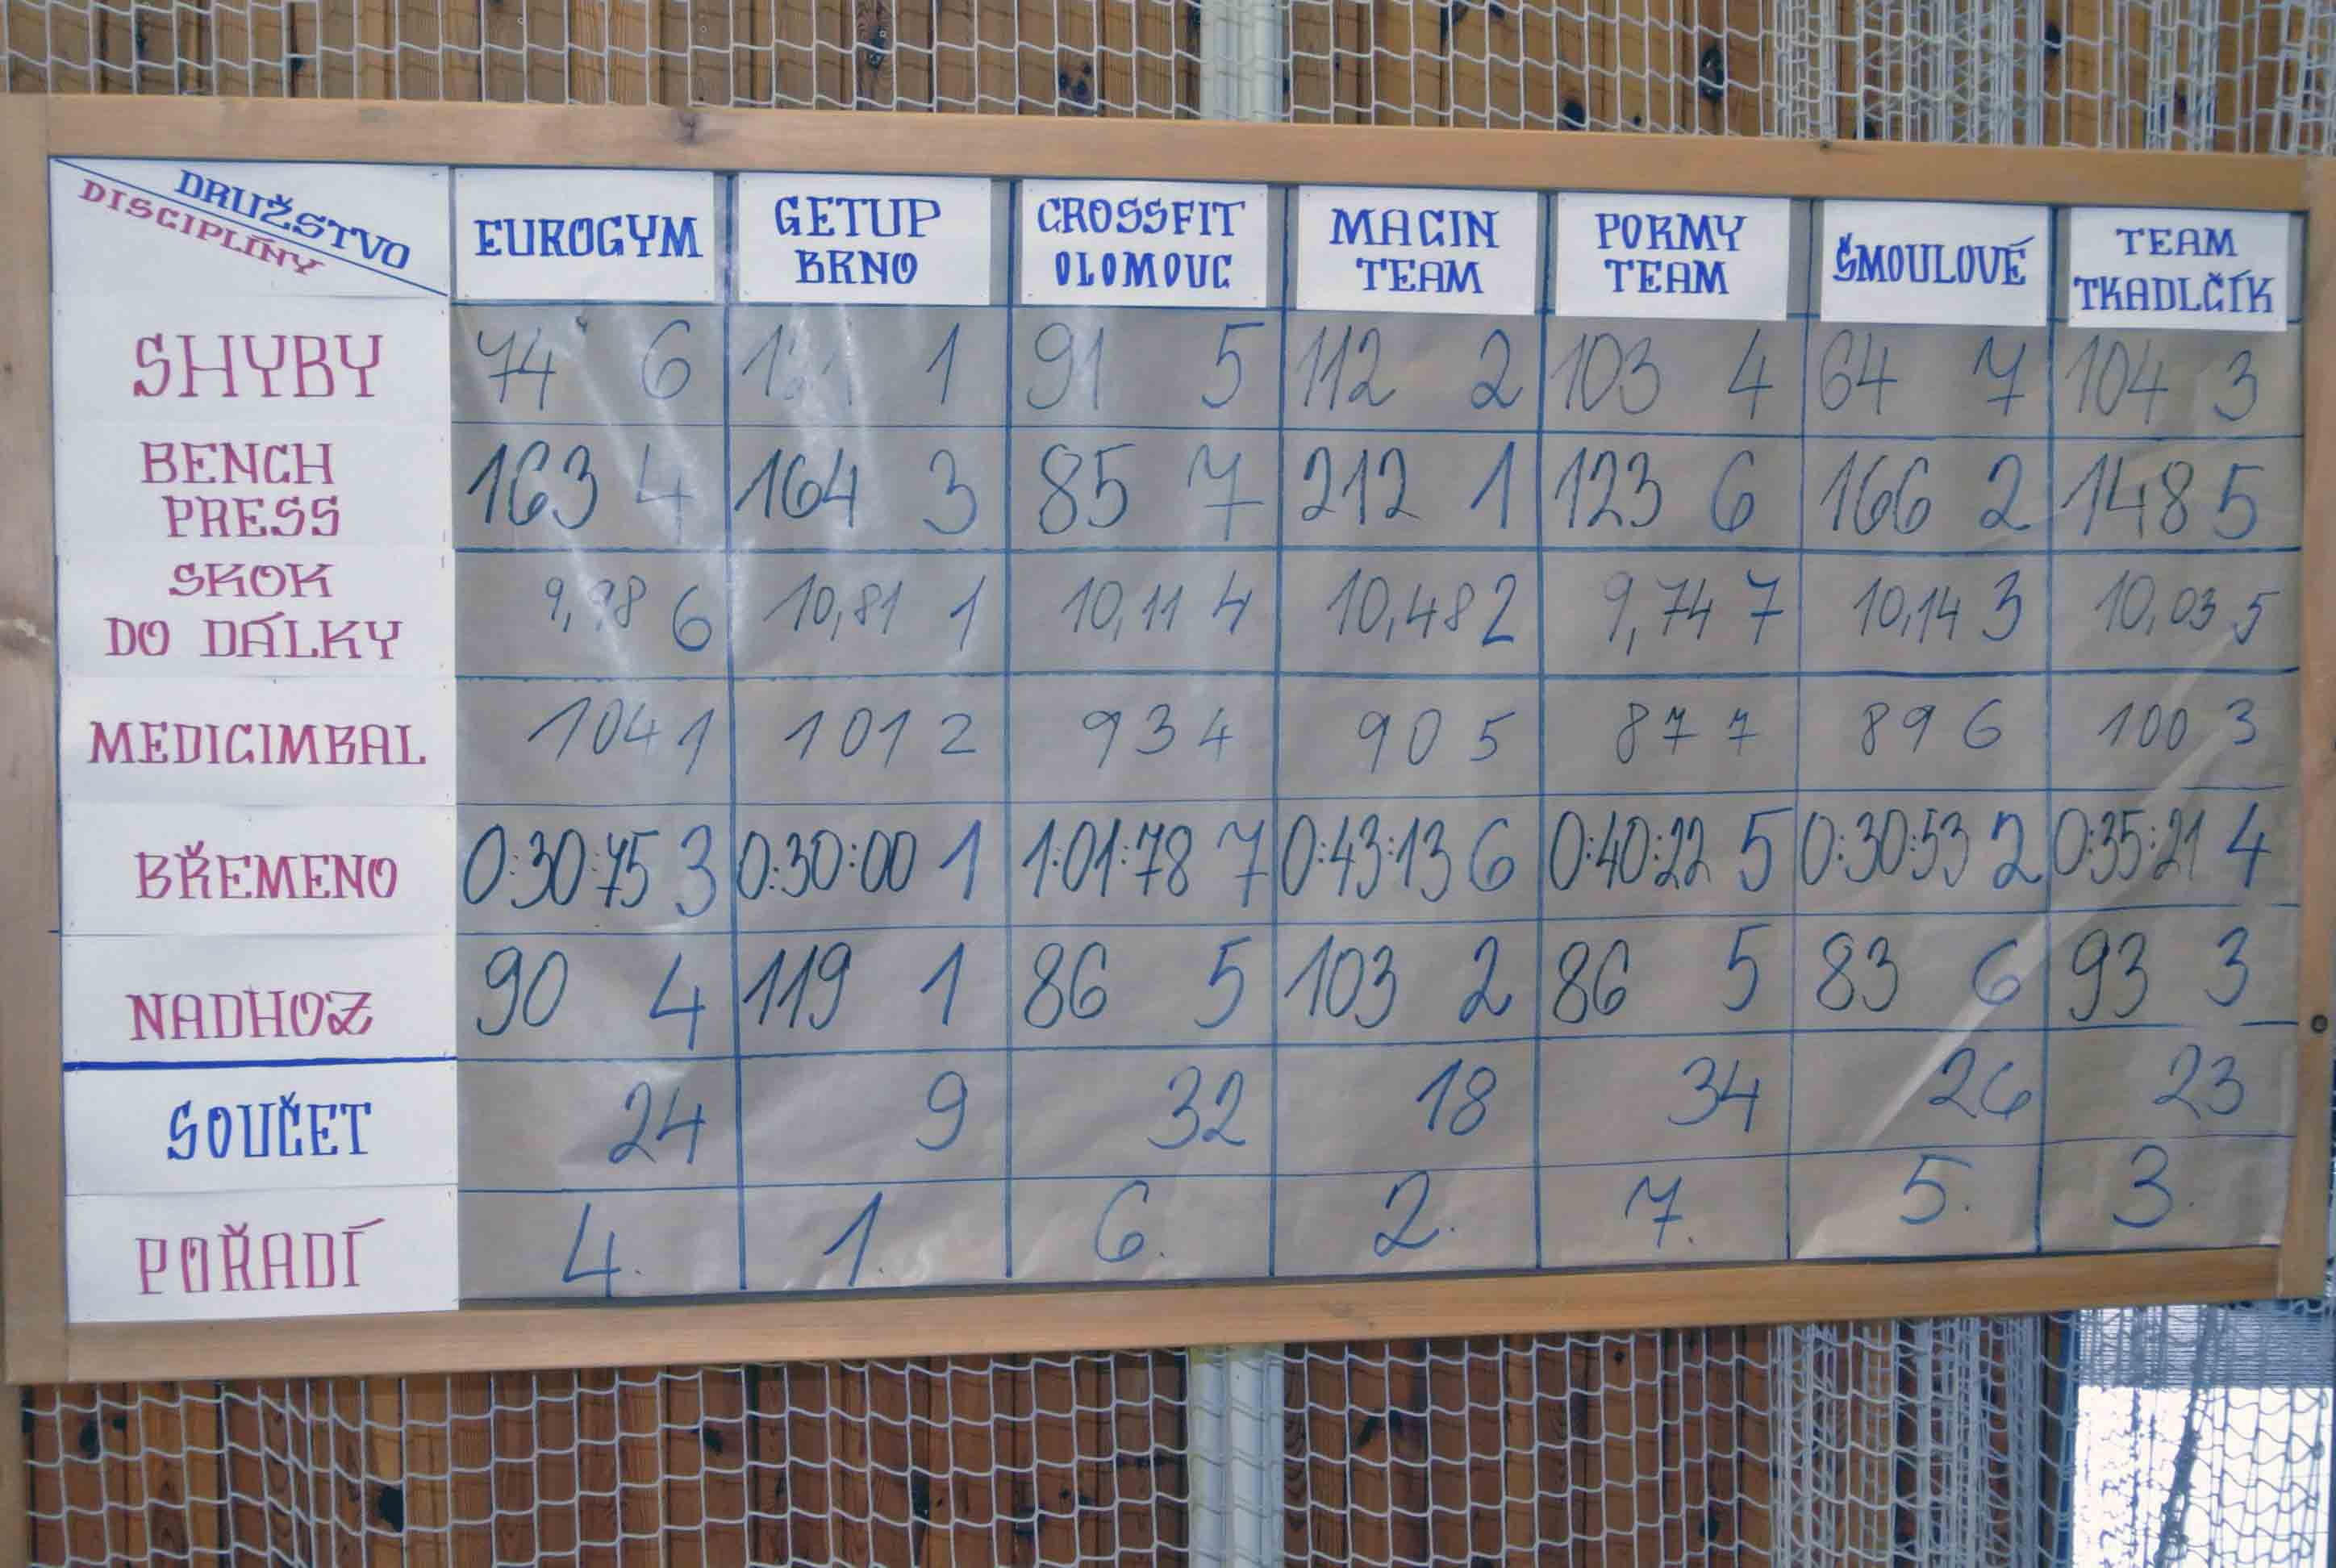 DRUŽSTVO
DISCIPLÍNY
EUROGYM
GETUP
BRNO
CROSSFIT
OLOMOUC
MACIN
TEAM
PORMY
TEAM
ŠMOULOVÉ
TEAM
TKADLČÍK
SHYBY
74 6 1 91 5 112 2 103 4 64 7 104 3
BENCH
PRESS
163 4 164 3 85 7 212 1 123 6 166 2 148 5
SKOK
DO DÁLKY
6 10,81 1 10,11 4 10,48 2 9,74 7 10,14 3 10,03 5
MEDICIMBAL
104 1 101 2 93 4 90 5 87 7 89 6 100 3
BŘEMENO
0:30:75 3 0:30:00 1 1:01:78 7 0:43:13 6 0:40:22 5 0:30:53 2 0:35:21 4
NADHOZ
90 4 119 1 86 5 103 2 86 5 83 6 93 3
SOUČET
24 9 32 18 34 26 23
POŘADÍ
4. 1. 6. 2. 7. 5. 3.